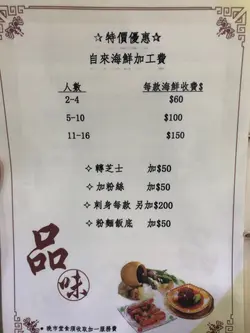 ☆特價優惠☆
自來海鮮加工費
人數 每款海鮮收費$
2-4 $60
5-10 $100
11-16 $150
✧ 轉芝士 加$50
✧ 加粉絲 加$50
✧ 刺身每款 另加$200
✧ 粉麵飯底 加$50
品
味
* 晚市堂食須收取加一服務費